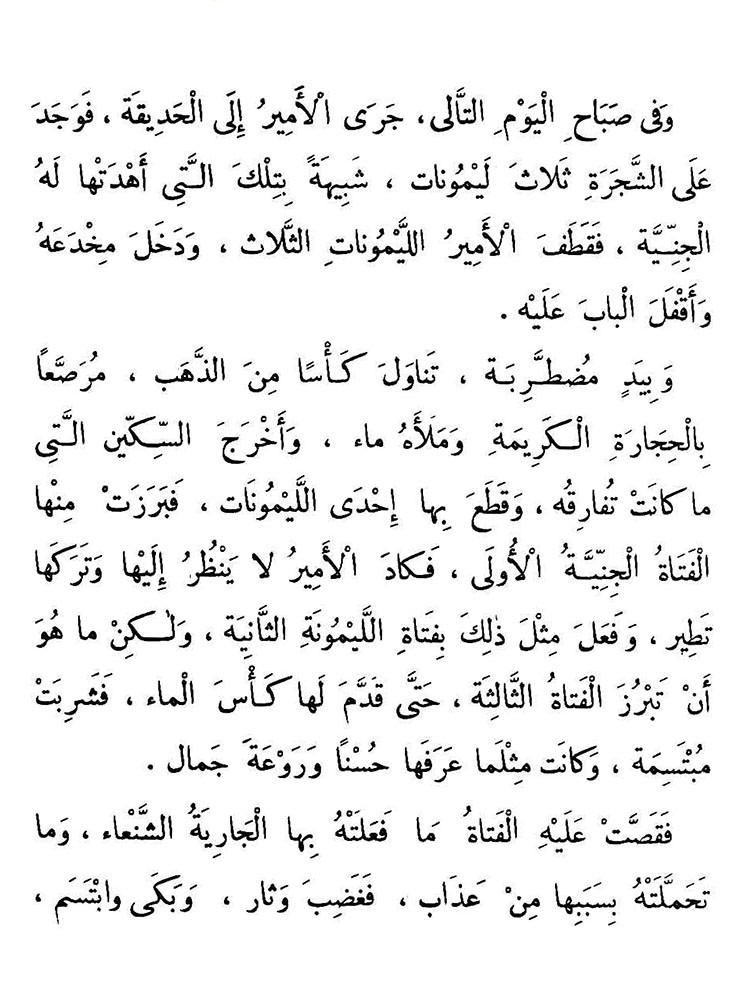 وَفى صَبَاحِ الْيَوْمِ التَّالى، جَرَى الْأَمِيرُ إِلَى الْحَدِيقَة ، فَوَجَدَ
عَلَى الشَّجَرَةِ ثَلاثَ لَيْمُونات ، شَبِيهَةً بِتِلْكَ الَّتِى أَهْدَتْها لَهُ
الْجِنِّيَّة ، فَقَطَفَ الْأَمِيرُ اللَّيْمُوناتِ الثَّلاث ، وَدَخَلَ مِخْدَعَهُ
وَأَقْفَلَ الْبابَ عَلَيْه .
وَبِيَدٍ مُضطَّرِبَة ، تَناوَلَ كَأْسًا مِنَ الذَّهَب ، مُرَصَّعاً
بِالْحِجَارَةِ الْكَرِيمَةِ وَمَلَأَهُ ماء ، وَأَخْرَجَ السِّكِّين الَّتِى
ما كانَتْ تُفارِقُه ، وَقَطَعَ بِها إِحْدَى اللَّيْمُونَات ، فَبَرَزَتْ مِنْها
الْفَتاةُ الْجِنِّيَّةُ الْأُولَى ، فَكادَ الْأَمِيرُ لا يَنْظُرُ إِلَيْها وَتَرَكَها
تَطِير ، وَفَعَلَ مِثْلَ ذٰلِكَ بِفَتاةِ اللَّيْمُونَةِ الثَّانِيَة ، وَلٰكِنْ ما هُوَ
أَنْ تَبْرُزَ الْفَتاةُ الثَّالِثَة ، حَتَّى قَدَّمَ لَها كَأْسَ الْماء ، فَشَرِبَتْ
مُبْتَسِمَة ، وَكانَت مِثْلَما عَرَفَها حُسْنًا وَرَوْعَةَ جَمال .
فَقَصَّتْ عَلَيْهِ الْفَتاةُ مَا فَعَلَتْهُ بِها الْجَارِيَةُ الشَّنْعاء ، وَما
تَحَمَّلَتْهُ بِسَبَبِها مِنْ عَذاب ، فَغَضِبَ وَثار ، وَبَكَى وابْتَسَم ،